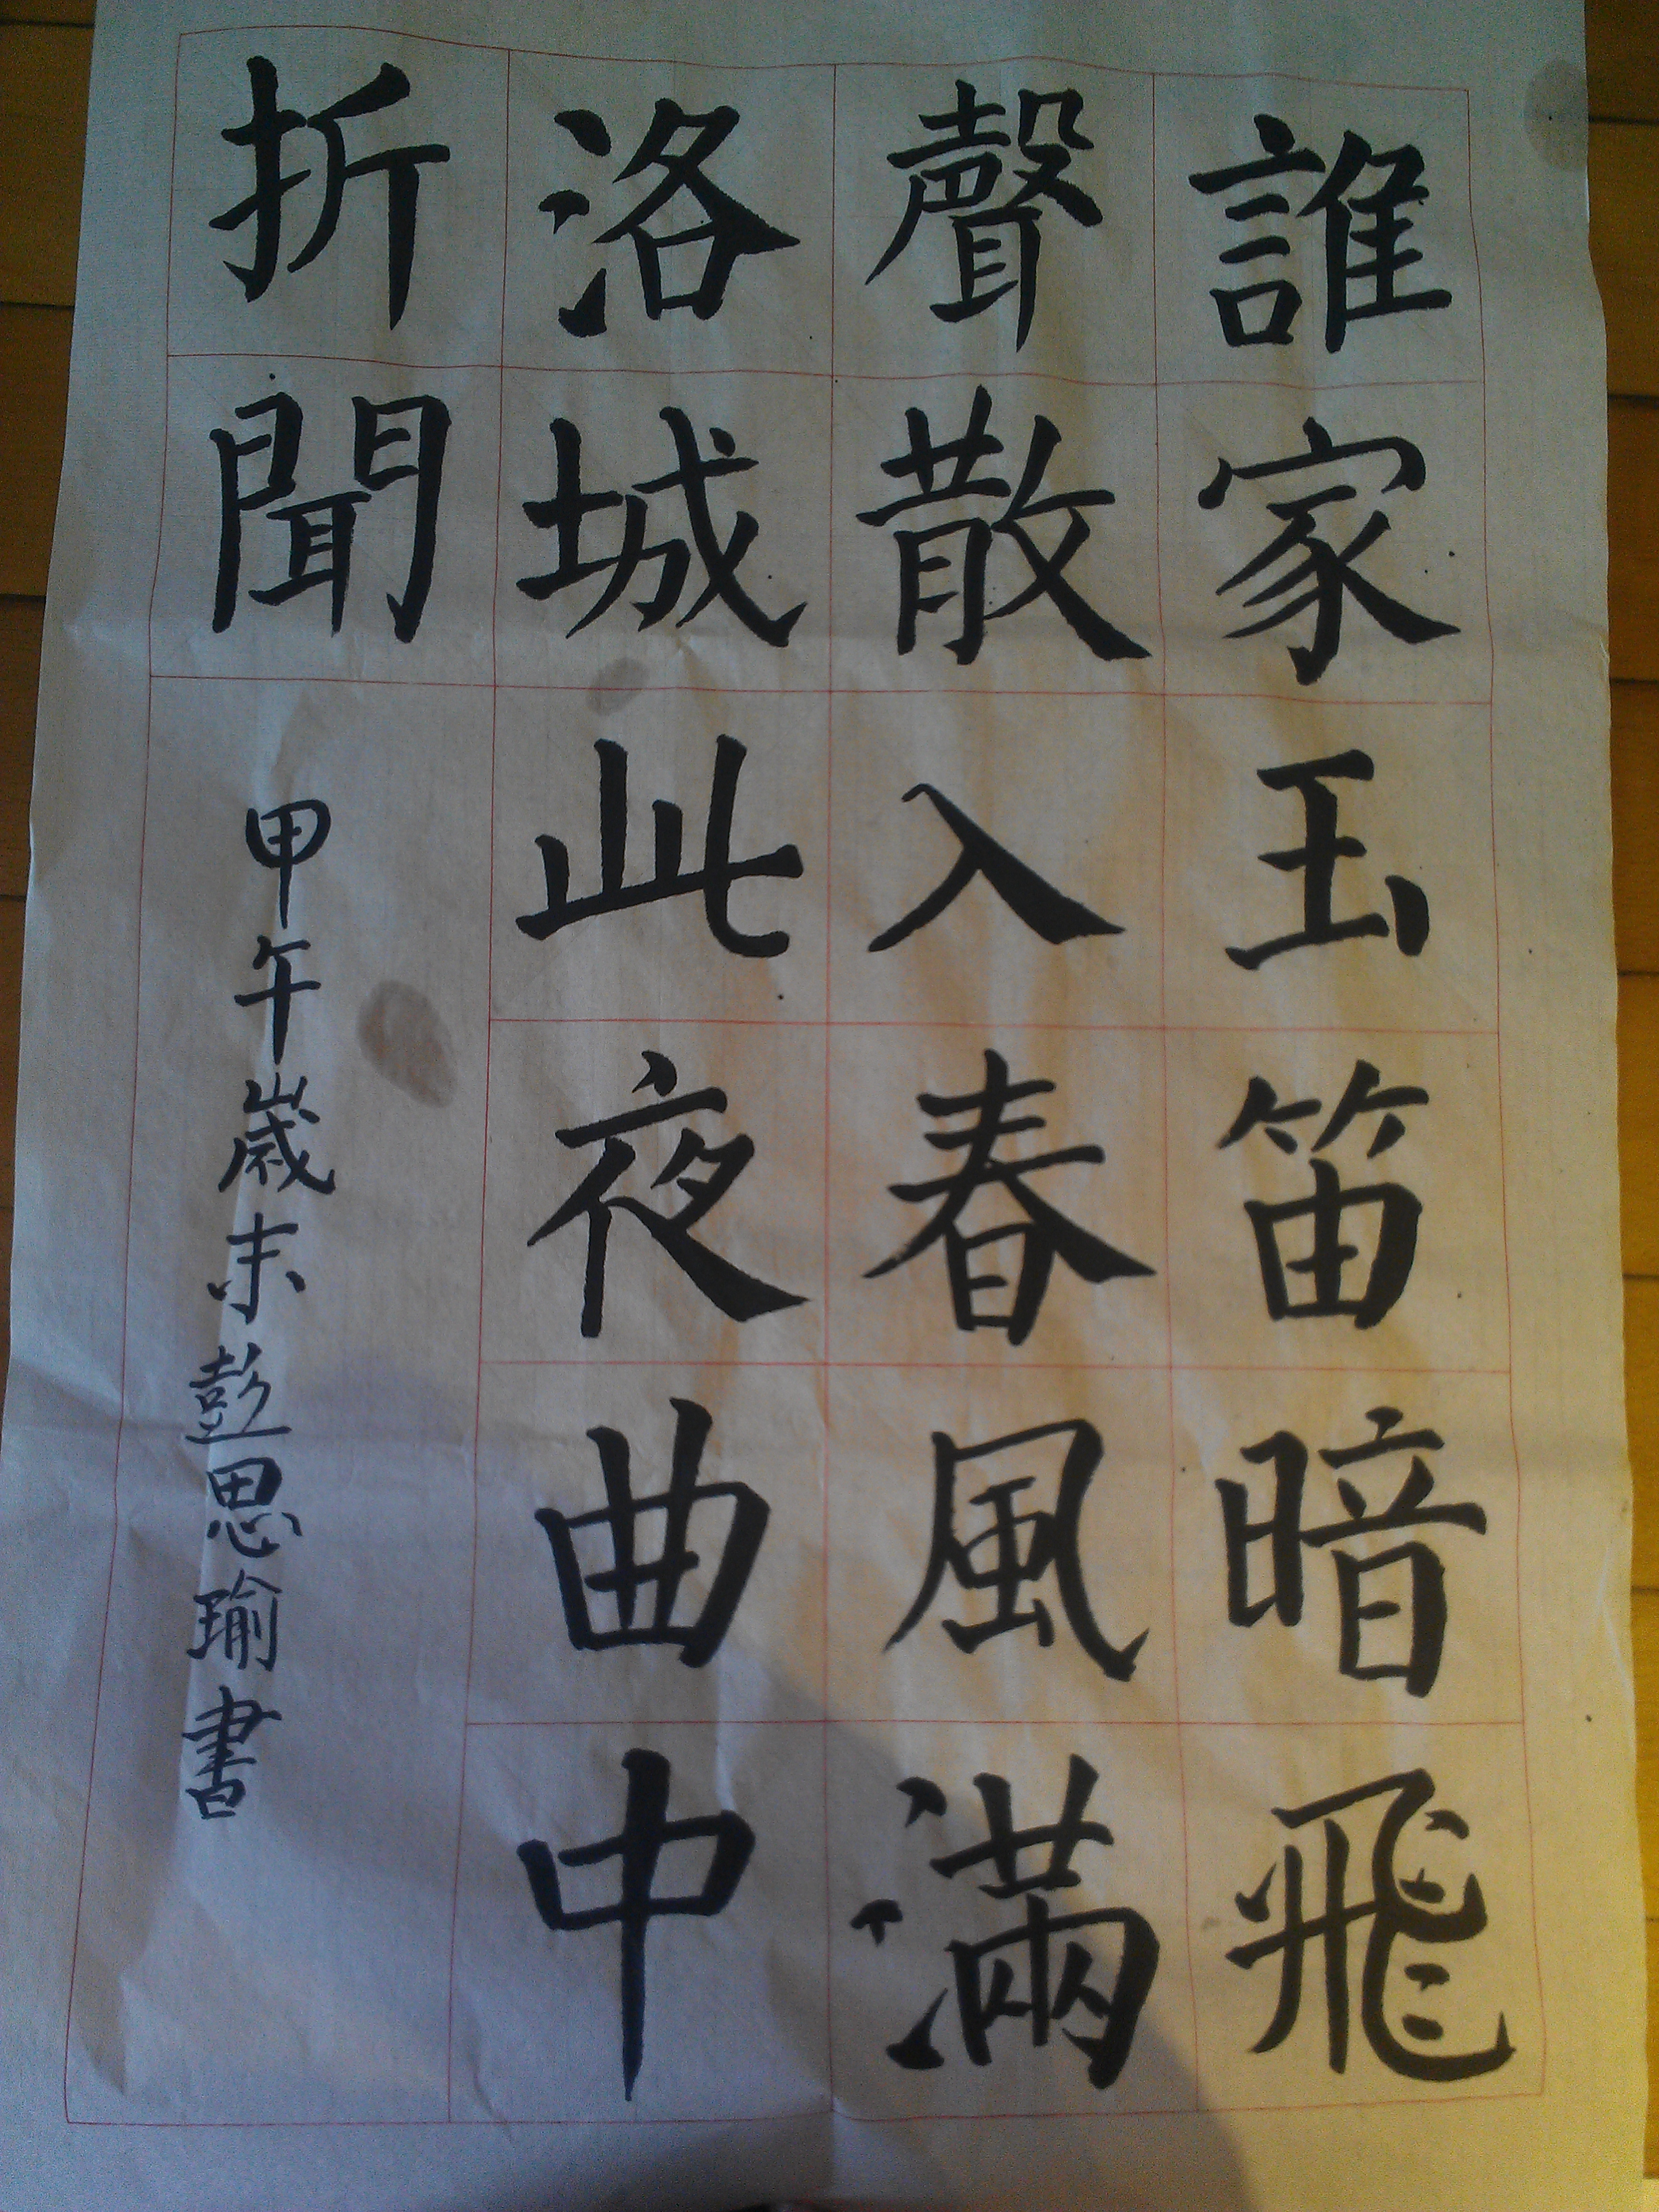 誰家玉笛暗飛
聲散入春風滿
洛城此夜曲中
折聞
甲午歲末彭思瑜書